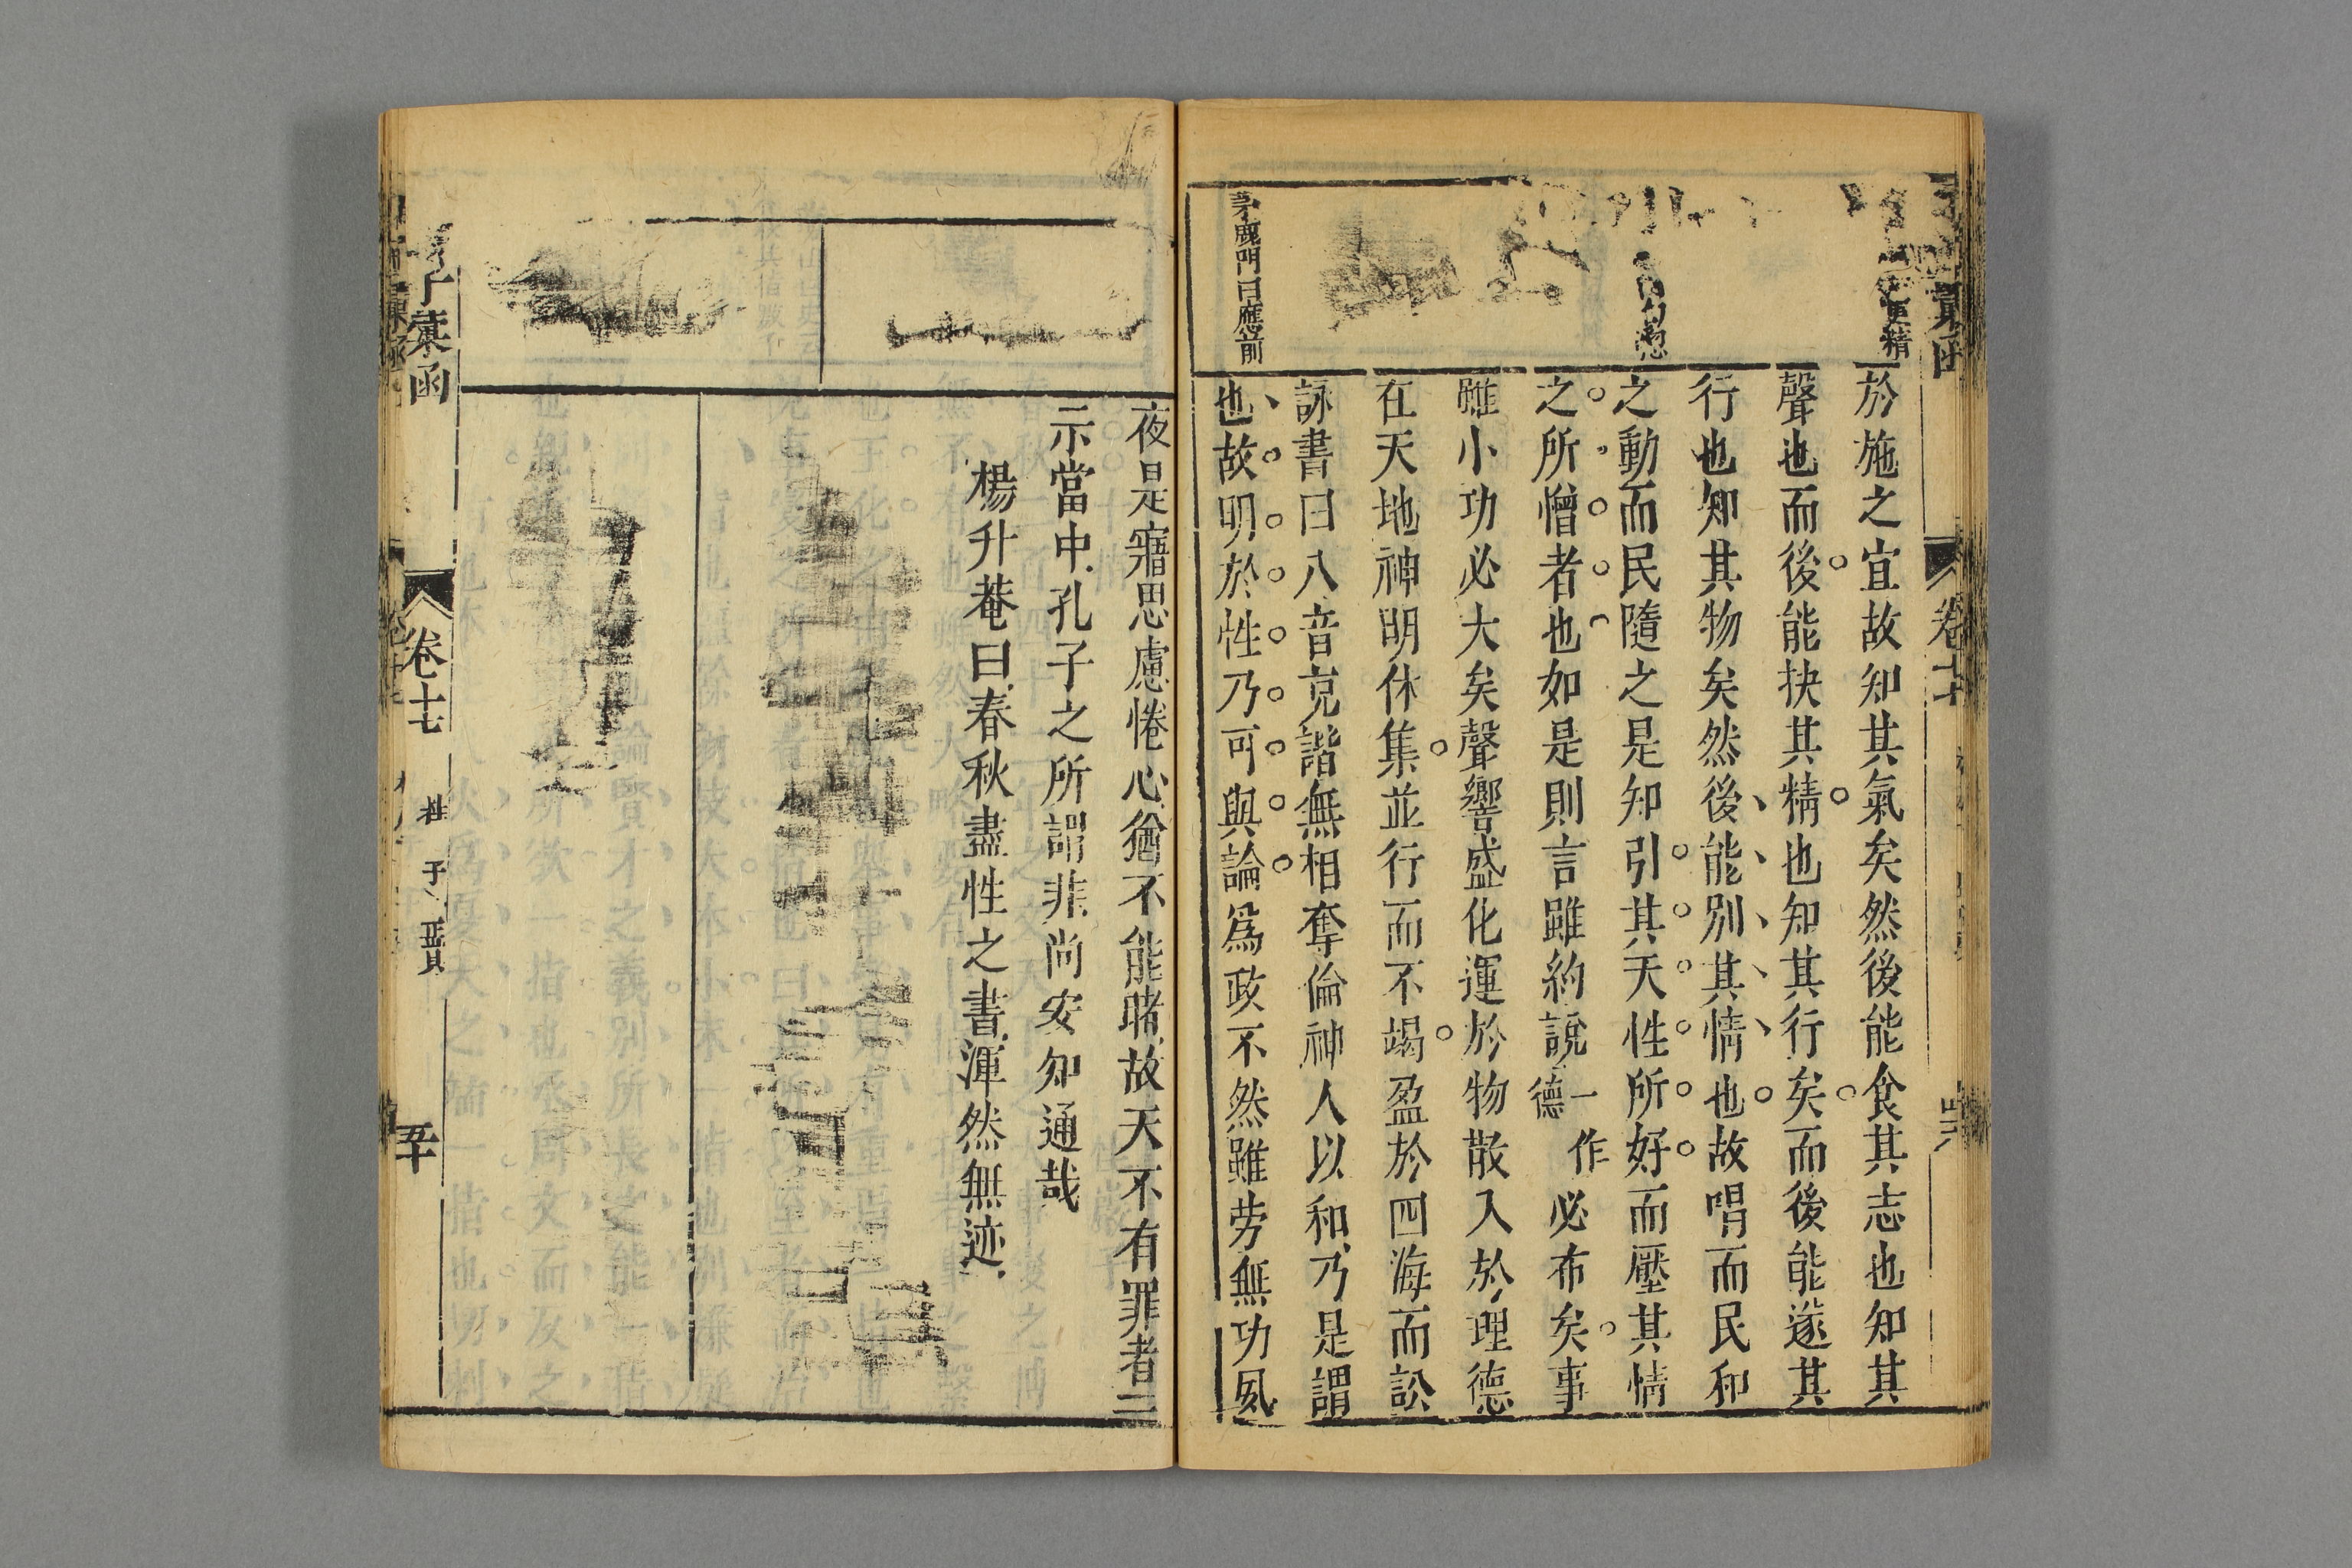 更精
於施之宜故知其氣矣然後能食其志也知其
聲也而後能抉其精也知其行矣而後能遂其
行也知其物矣然後能別其情也故唱而民和
之動而民隨之是知引其天性所好而壓其情
之所憎者也如是則言雖約說一作德必布矣事
雖小功必大矣聲響盛化運於物散入於理德
在天地神明休集並行而不竭盈於四海而訟
詠書曰八音克諧無相奪倫神人以和乃是謂
也故明於性乃可與論爲政不然雖勞無功夙
茅鹿門曰應前
夜是寤思慮惓心猶不能睹故天不有罪者三
示當中孔子之所謂非尚安知通哉
楊升菴曰春秋盡性之書渾然無迹
子彙函
卷十七
五十